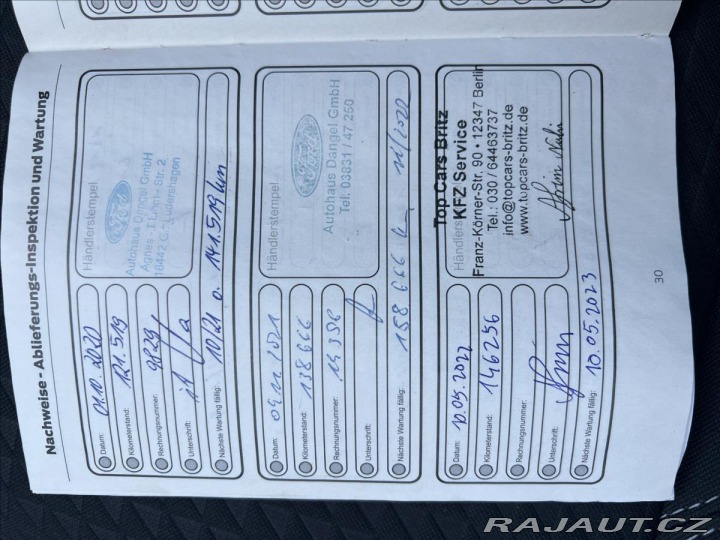 Nachweise - Ablieferungs-Inspektion und Wartung
Datum: 01.10.2020
Kilometerstand: 121.519
Rechnungsnummer: 9829
Unterschrift:
Nächste Wartung fällig: 10/21 o. 141.519 km
Händlerstempel
Ford
Autohaus Dangel GmbH
18442
Datum:
Kilometerstand: 138666
Rechnungsnummer:
Unterschrift:
Nächste Wartung fällig: 158 666
Händlerstempel
Ford
Autohaus Dangel GmbH
Tel: 03831 / 47 250
Datum: 10.05.2022
Kilometerstand: 146256
Rechnungsnummer:
Unterschrift:
Nächste Wartung fällig: 10.05.2023
Händlers
Top Cars Britz
KFZ Service
Franz-Körner-Str. 90 • 12347 Berlin
Tel.: 030 / 64463737
info@topcars-britz.de
www.topcars-britz.de
30
RAJAUT.CZ